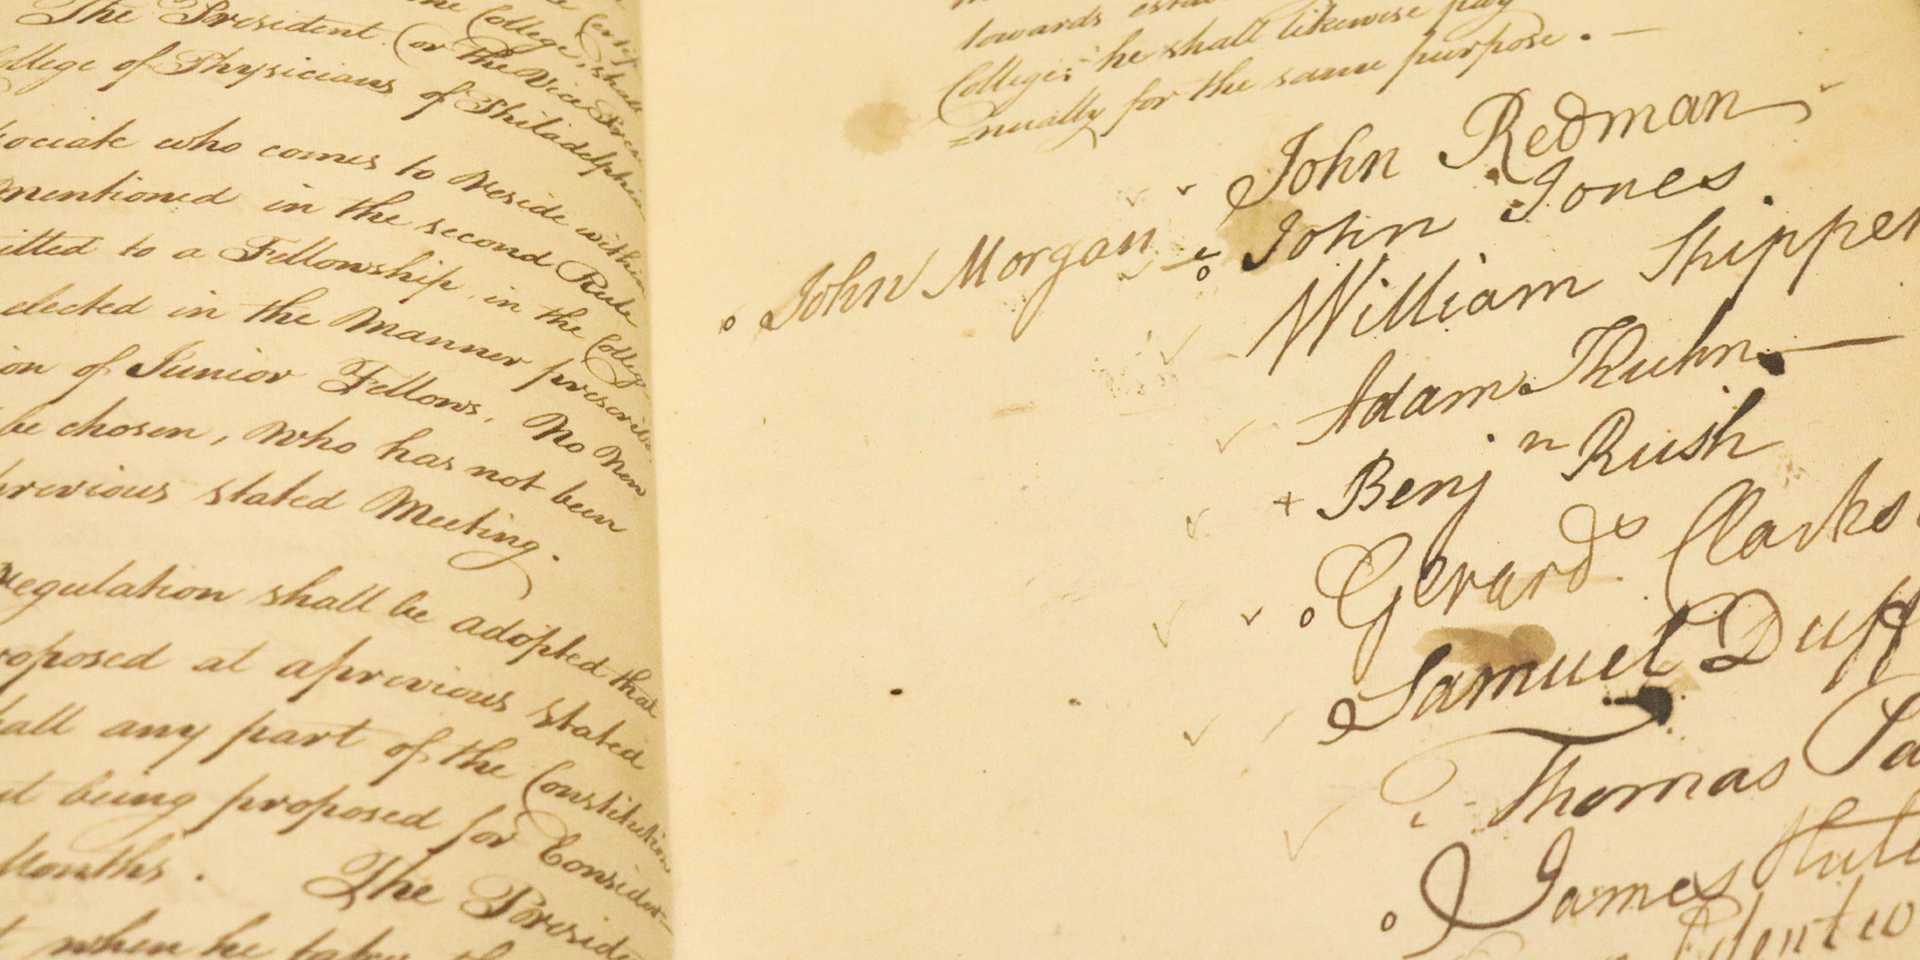 the College, shall
The President (or the Vice Presi
College of Physicians of Philadelphia
sociate who comes to reside within
mentioned in the second Rule
itted to a Fellowship in the Colleg
elected in the Manner prescribe
ion of Junior Fellows. No New
be chosen, who has not been
previous stated Meeting.
regulation shall be adopted that
roposed at a previous stated
hall any part of the Constitution
it being proposed for Consider-
Months. The Preside
when he takes the
towards
College; he shall likewise pay
nually for the same purpose.
John Redman
John Morgan
John Jones.
William Shippen
Adam Kuhn
Benj n Rush
Gerards Clarks
Samuel Duff
Thomas Pa
James Hutc